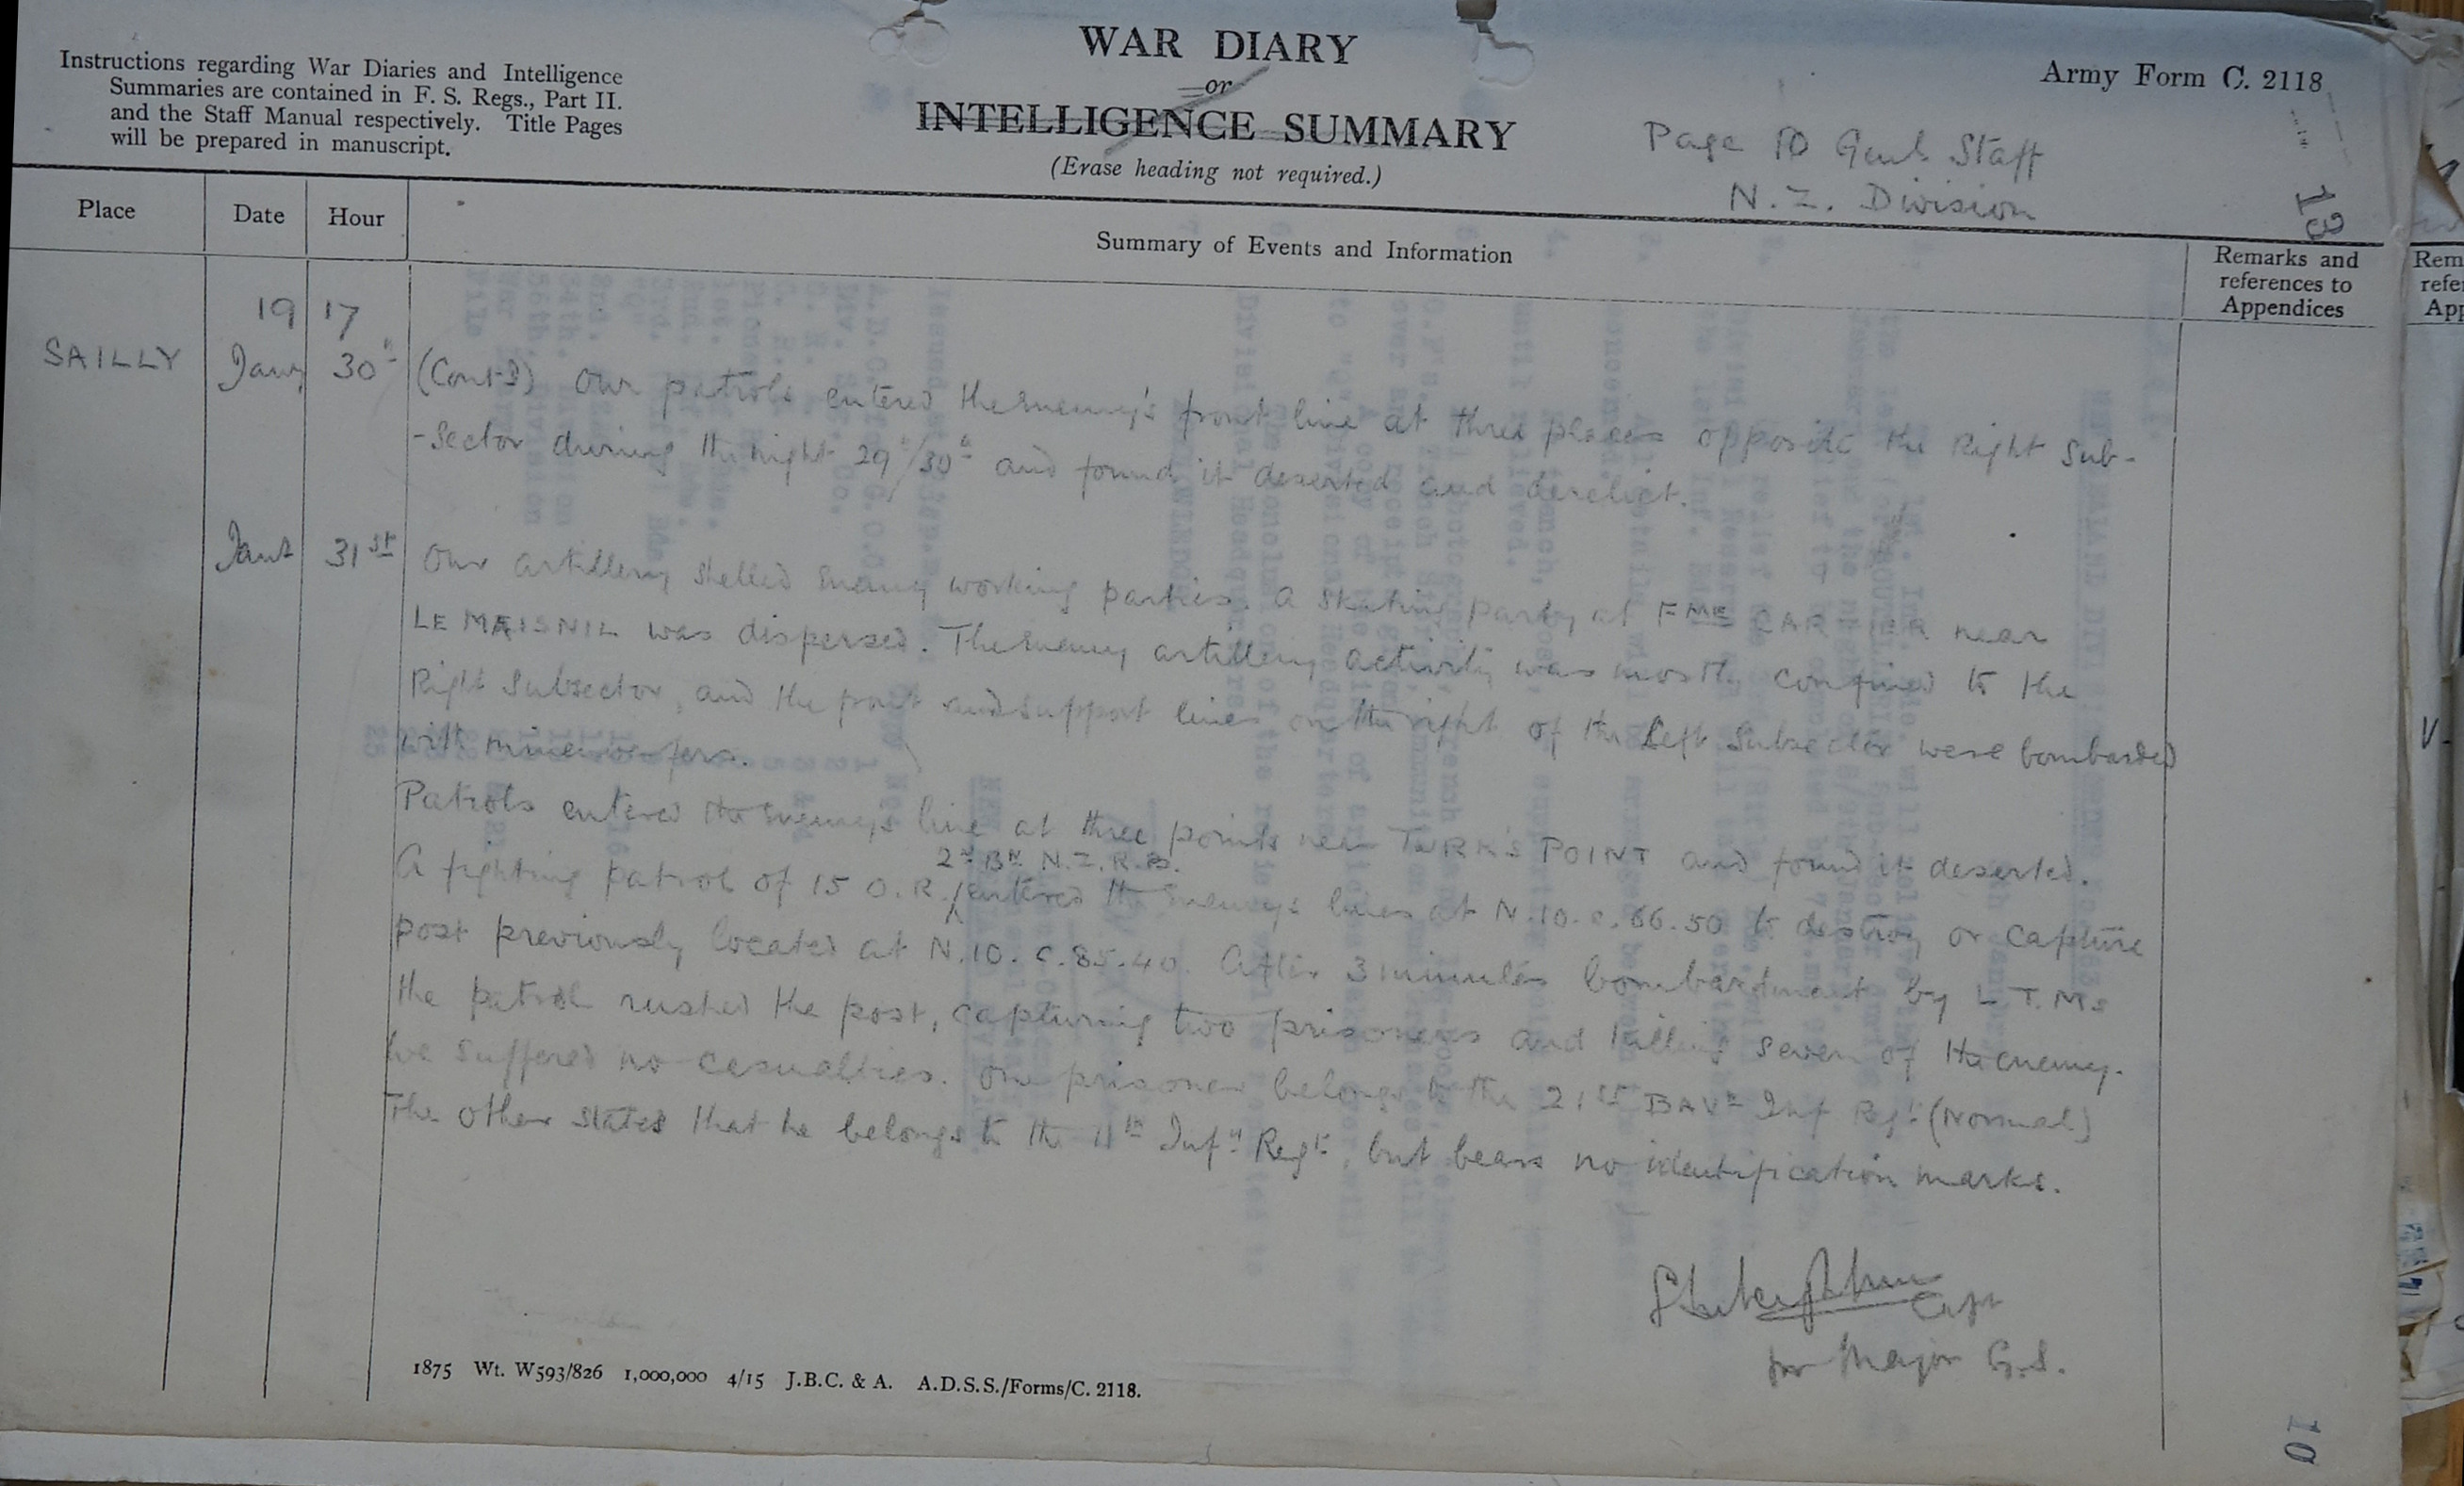 Instructions regarding War Diaries and Intelligence
Summaries are contained in F. S. Regs., Part II.
and the Staff Manual respectively. Title Pages
will be prepared in manuscript.
WAR DIARY
or
INTELLIGENCE SUMMARY
(Erase heading not required.)
Army Form C. 2118
Page 10 Genl Staff
N.Z. Division
13
Place
Date
Hour
Summary of Events and Information
Remarks and
references to
Appendices
19 17
SAILLY Jany 30th (Contd) Our patrols entered the Enemy's front line at three places opposite the Right Sub-
-Sector during the night 29th/30th and found it deserted and derelict.
Jany 31st Our artillery shelled Enemy working parties. A skating party at FME near
LE MAISNIL was dispersed. The Enemy artillery activity was mostly confined to the
Right Subsector, and the front and support lines on the right of the Left Subsector were bombarded
with minenwerfers.
Patrols entered the Enemy's line at three points near TURK'S POINT and found it deserted.
2nd Bn N.Z.R.B.
A fighting patrol of 15 O.R. entered the Enemy's lines at N.10.c.66.50 to destroy or capture
post previously located at N.10.c.85.40. After 3 minutes bombardment by L.T.Ms
the patrol rushed the post, capturing two prisoners and killing seven of the enemy.
We suffered no casualties. One prisoner belongs to the 21st BAVn Inf Regt (Normal)
The other states that he belongs to the 11th Infy Regt but bears no identification marks.
Capt
for Major G.S.
1875 Wt. W593/826 1,000,000 4/15 J.B.C. & A. A.D.S.S./Forms/C. 2118.
10